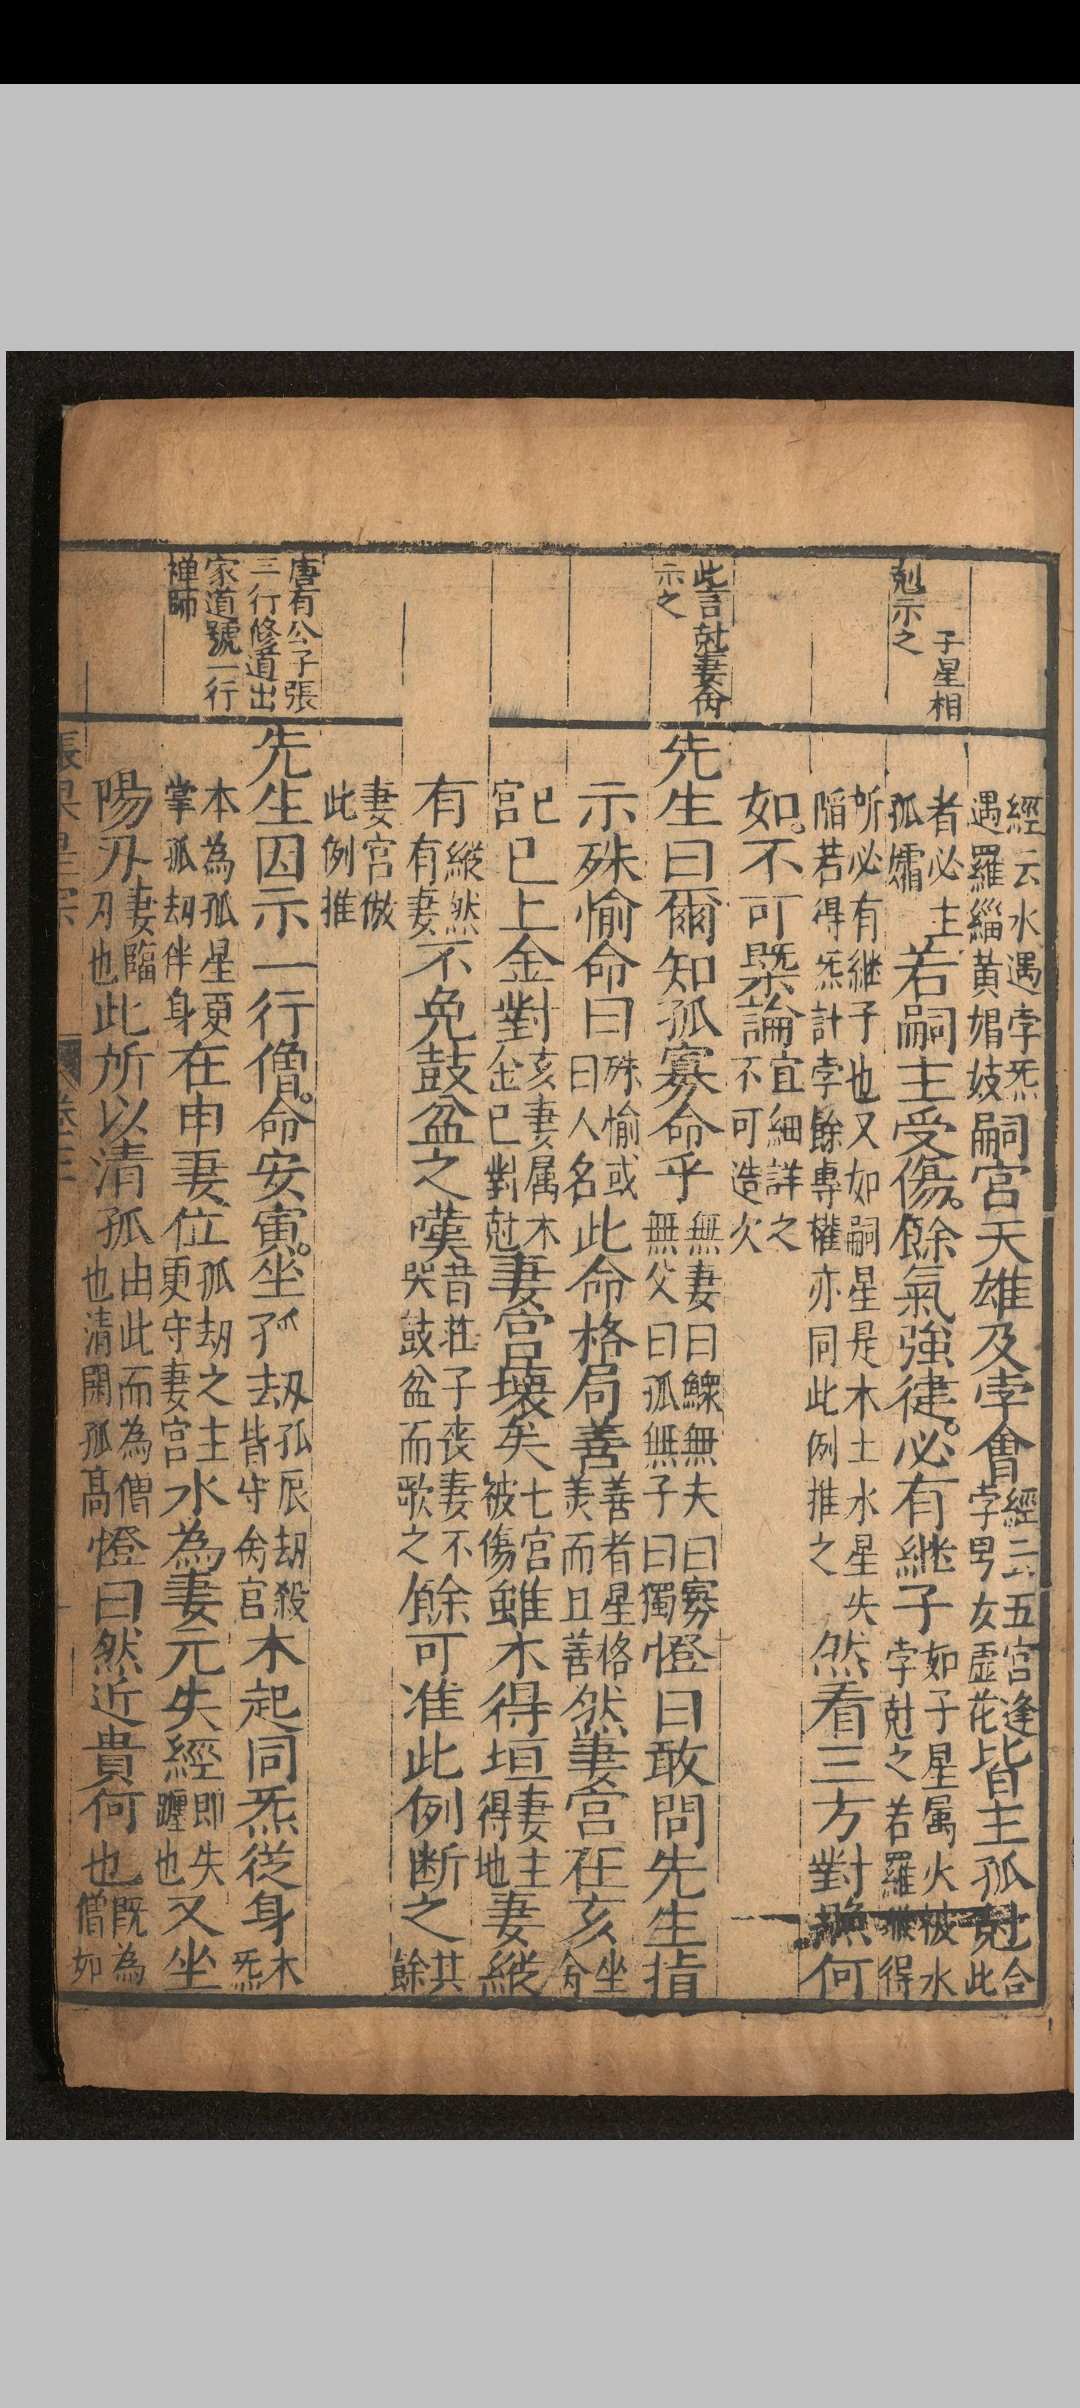 子星相
剋示之
此言尅妻例
示之
唐有公子張
三行修道出
家道號一行
禅師
經云水遇孛炁
遇羅緇黃娼妓
嗣宮天雄及孛會
經云五宮逢
孛男女虛花
皆主孤尅
合
此
者必主
孤孀
若嗣主受傷。餘氣強徤。必有継子
如子星属火被水
孛尅之若羅㬋得
所必有継子也又如嗣星是木土水星失
陷若得炁計孛餘專權亦同此例推之
然看三方對照何
如。不可槩論
宜細詳之
不可造次
先生曰爾知孤寡命乎
無妻曰鰥無夫曰寡
無父曰孤無子曰獨
憕曰敢問先生指
示殊愉命曰
殊愉或
曰人名
此命格局善
善者星格
美而且善
然妻宮在亥
坐
命
宮巳巳上金對
亥妻属木
金巳對尅
妻宮壞矣
七宮
被傷
雖木得垣
妻主
得地
妻縱
有
縱然
有妻
不免鼓盆之嘆
昔莊子丧妻不
哭鼓盆而歌之
餘可准此例断之
其
餘
妻宮倣
此例推
先生因示一行僧。命安寅。坐孤劫
孤辰劫殺
皆守命宮
木起同炁從身
木
炁
本為孤星更
掌孤劫伴身
在申妻位
孤劫之主
更守妻宮
水為妻元失經
即失
躔也
又坐
陽刃
妻臨
刃也
此所以清孤
由此而為僧
也清閑孤高
憕曰然近貴何也
既為
僧如